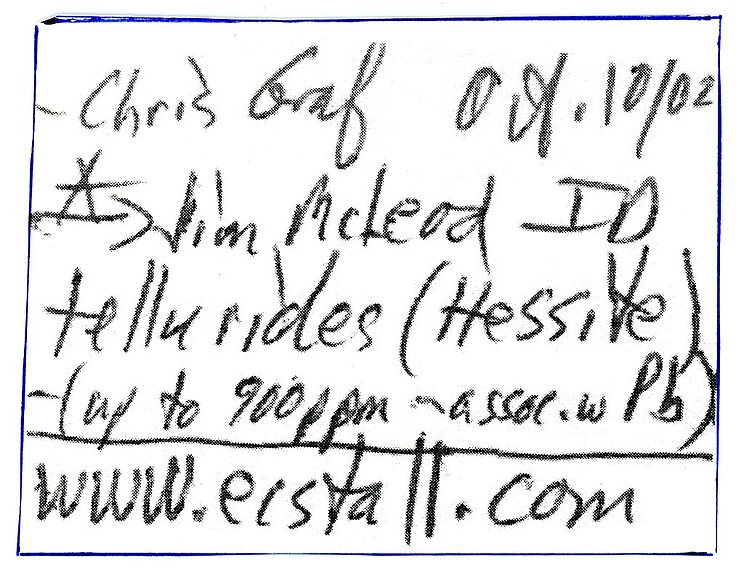 - Chris Graf Oct. 10/02
→ Jim McLeod ID
tellurides (Hessite)
- (up to 900ppm - assoc. w Pb)
www.ecstall.com